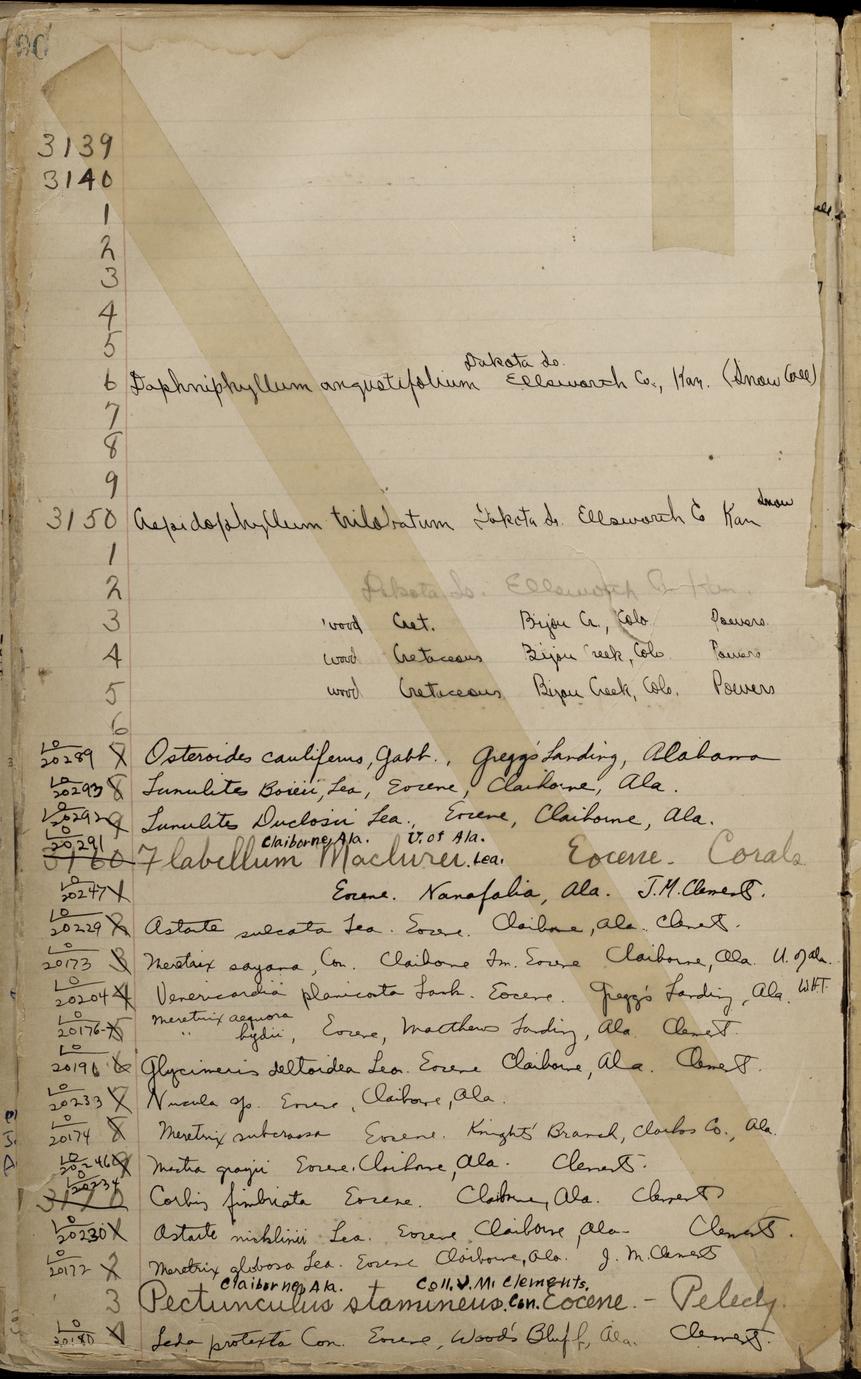 90
3139
3140
1
2
3
4
5
Dakota Ss.
6 Daphniphyllum angustifolium Ellsworth Co., Kan. (Snow Coll)
7
8
9
Snow
3150 Aspidophyllum trilobatum Dakota Ss. Ellsworth Co Kan
1
2 Dakota Ss. Ellsworth Co Kan.
3 wood Cret. Bijou Cr., Colo Powers
4 wood Cretaceous Bijou Creek, Colo Powers
5 wood Cretaceous Bijou Creek, Colo. Powers
6
LO 20289 7 Osteroides cauliferus, Gabb., Gregg's Landing, Alabama
LO 20293 8 Lunulites Boieii, Lea, Eocene, Claiborne, Ala.
LO 20292 9 Lunulites Duclosii Lea., Eocene, Claiborne, Ala.
LO 20291 Claiborne, Ala. U. of Ala.
3160 Flabellum Maclurei. Lea. Eocene. Corals
LO 20247 1 Eocene. Nanafalia, Ala. J.M. Clement.
LO 20229 2 Astarte sulcata Lea. Eocene. Claiborne, Ala. Clement.
LO 20173 3 Meretrix sayana, Con. Claiborne Fm. Eocene Claiborne, Ala. U. of Ala.
LO 20204 4 Venericardia planicosta Lamk. Eocene. Gregg's Landing, Ala. WHT.
Meretrix aequora
LO 20176 5 " hydii, Eocene, Matthews Landing, Ala Clement.
LO 20196 6 Glycimeris deltoidea Lea. Eocene Claiborne, Ala. Clement.
LO 20233 7 Nucula sp. Eocene, Claiborne, Ala.
LO 20174 8 Meretrix subcrassa Eocene. Knights' Branch, Clarke Co., Ala.
LO 20246 9 Mactra grayii Eocene, Claiborne, Ala. Clement.
LO 20234 3170 Corbis fimbriata Eocene. Claiborne, Ala. Clement
LO 20230 1 Astarte nicklinii Lea. Eocene Claiborne, Ala- Clement.
LO 20172 2 Meretrix globosa Lea. Eocene Claiborne, Ala. J. M. Clement
Claiborne, Ala. Coll. V. M. Clements.
3 Pectunculus stamineus. Con. Eocene. - Pelecy.
LO 20180 4 Leda protexta Con. Eocene, Wood's Bluff, Ala. Clement.